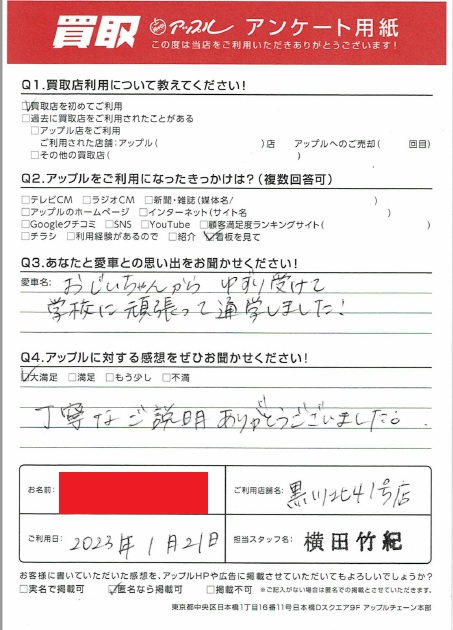 買取 アップル アンケート用紙
この度は当店をご利用いただきありがとうございます!
Q1.買取店利用について教えてください!
☑買取店を初めてご利用
□過去に買取店をご利用されたことがある
□アップル店をご利用
ご利用された店舗:アップル( )店 アップルへのご売却( 回目)
□その他の買取店( )
Q2.アップルをご利用になったきっかけは?(複数回答可)
□テレビCM □ラジオCM □新聞・雑誌(媒体名/ )
□アップルのホームページ □インターネット(サイト名 )
□Googleクチコミ □SNS □YouTube □顧客満足度ランキングサイト( )
□チラシ □利用経験があるので □紹介 ☑看板を見て
Q3.あなたと愛車との思い出をお聞かせください!
愛車名: おじいちゃんから ゆずり受けて
学校に頑張って通学しました!
Q4.アップルに対する感想をぜひお聞かせください!
☑大満足 □満足 □もう少し □不満
丁寧なご説明ありがとうございました。
お名前: ご利用店舗名: 黒川北41号店
ご利用日: 2023年1月21日 担当スタッフ名: 横田竹紀
お客様に書いていただいた感想を、アップルHPや広告に掲載させていただいてもよろしいでしょうか?
□実名で掲載可 ☑匿名なら掲載可 □掲載不可 ※ご記入がない場合は匿名での掲載とさせていただきます。
東京都中央区日本橋1丁目16番11号日本橋Dスクエア9F アップルチェーン本部